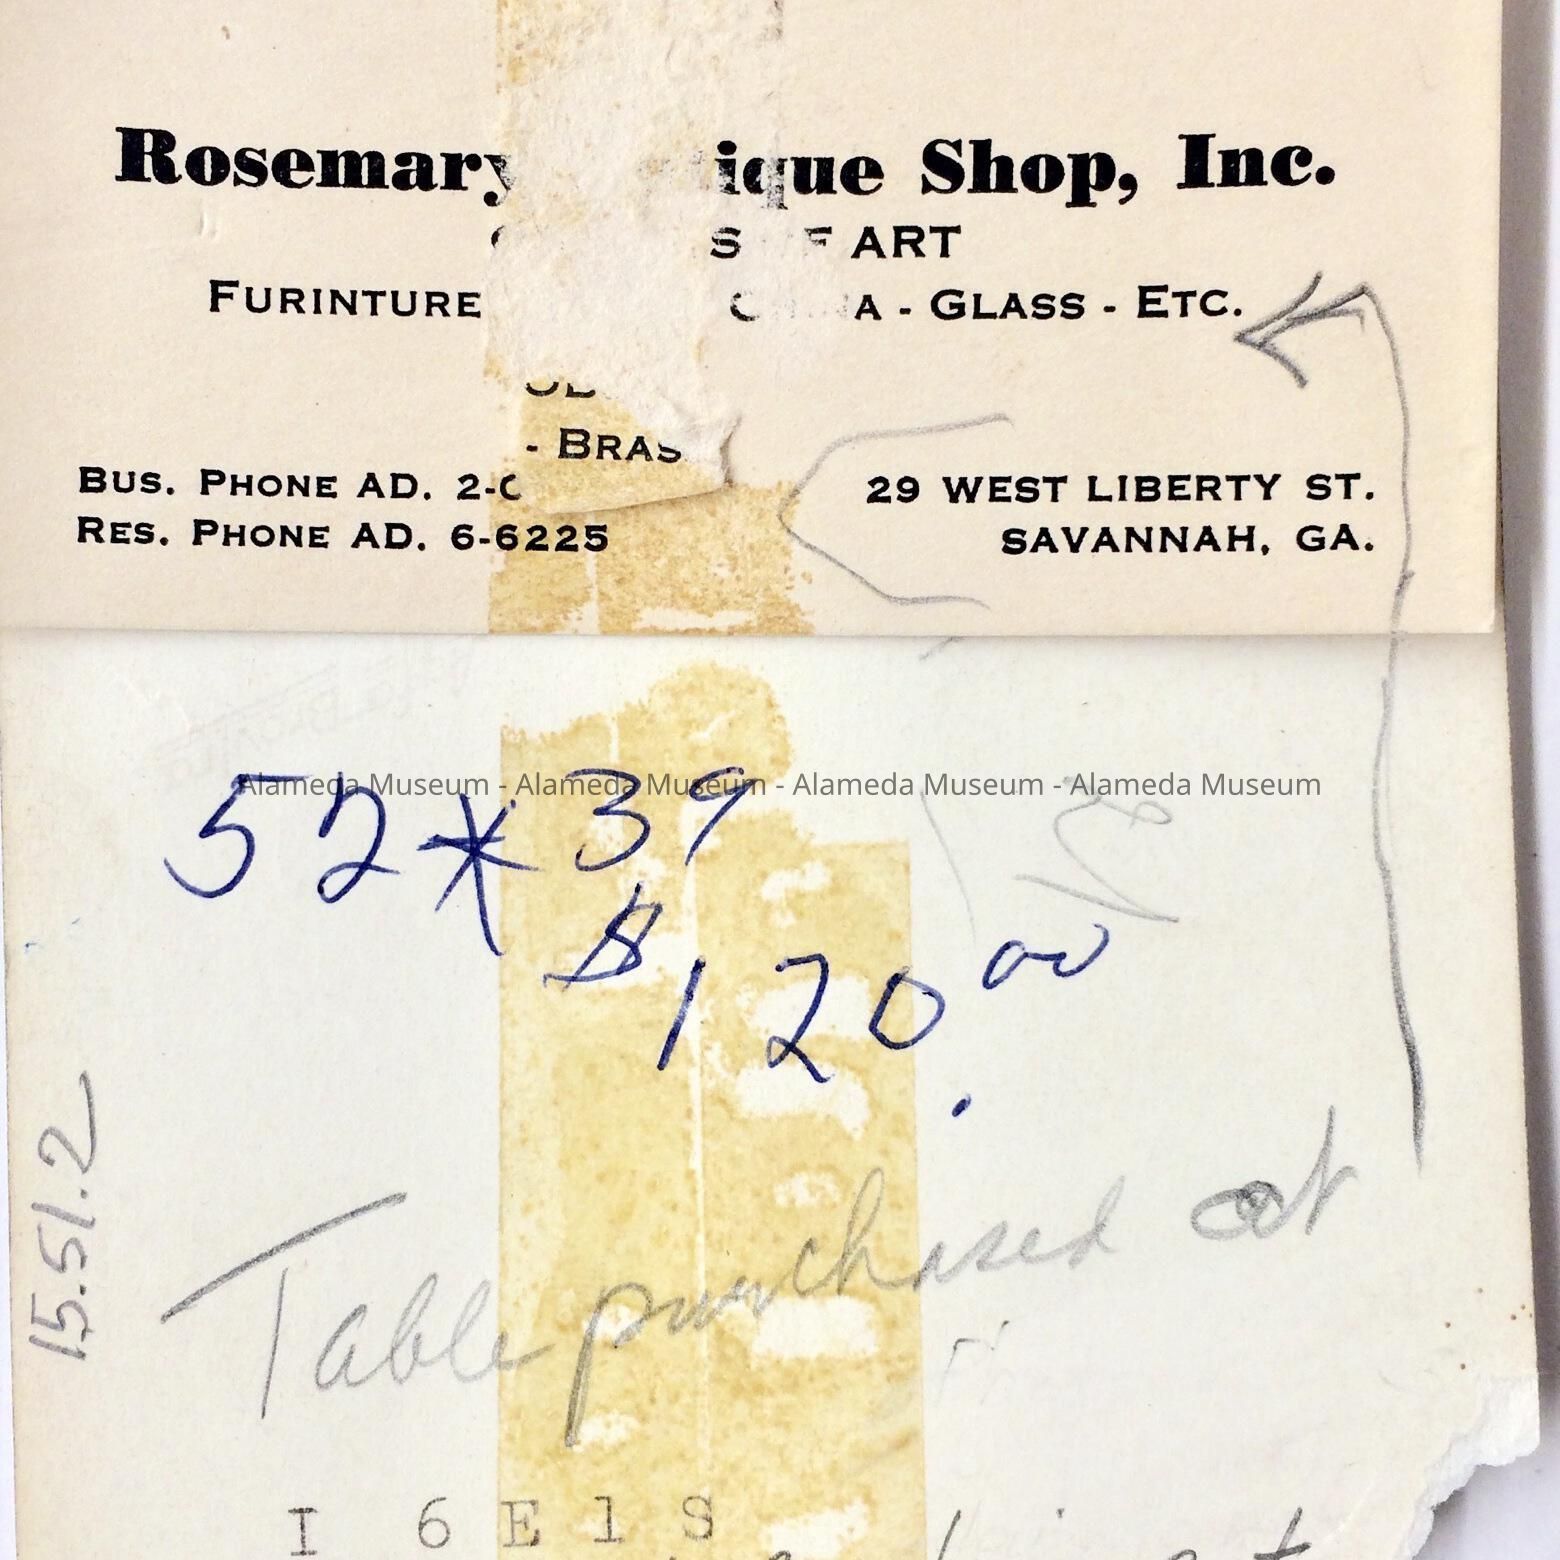 Rosemary ique Shop, Inc.
ART
FURINTURE A - GLASS - ETC.
- BRAS
BUS. PHONE AD. 2-
RES. PHONE AD. 6-6225
29 WEST LIBERTY ST.
SAVANNAH, GA.
Alameda Museum - Alameda Museum - Alameda Museum - Alameda Museum
52 * 39
$120.00
15.51.2
Table purchased at
I 6E1S